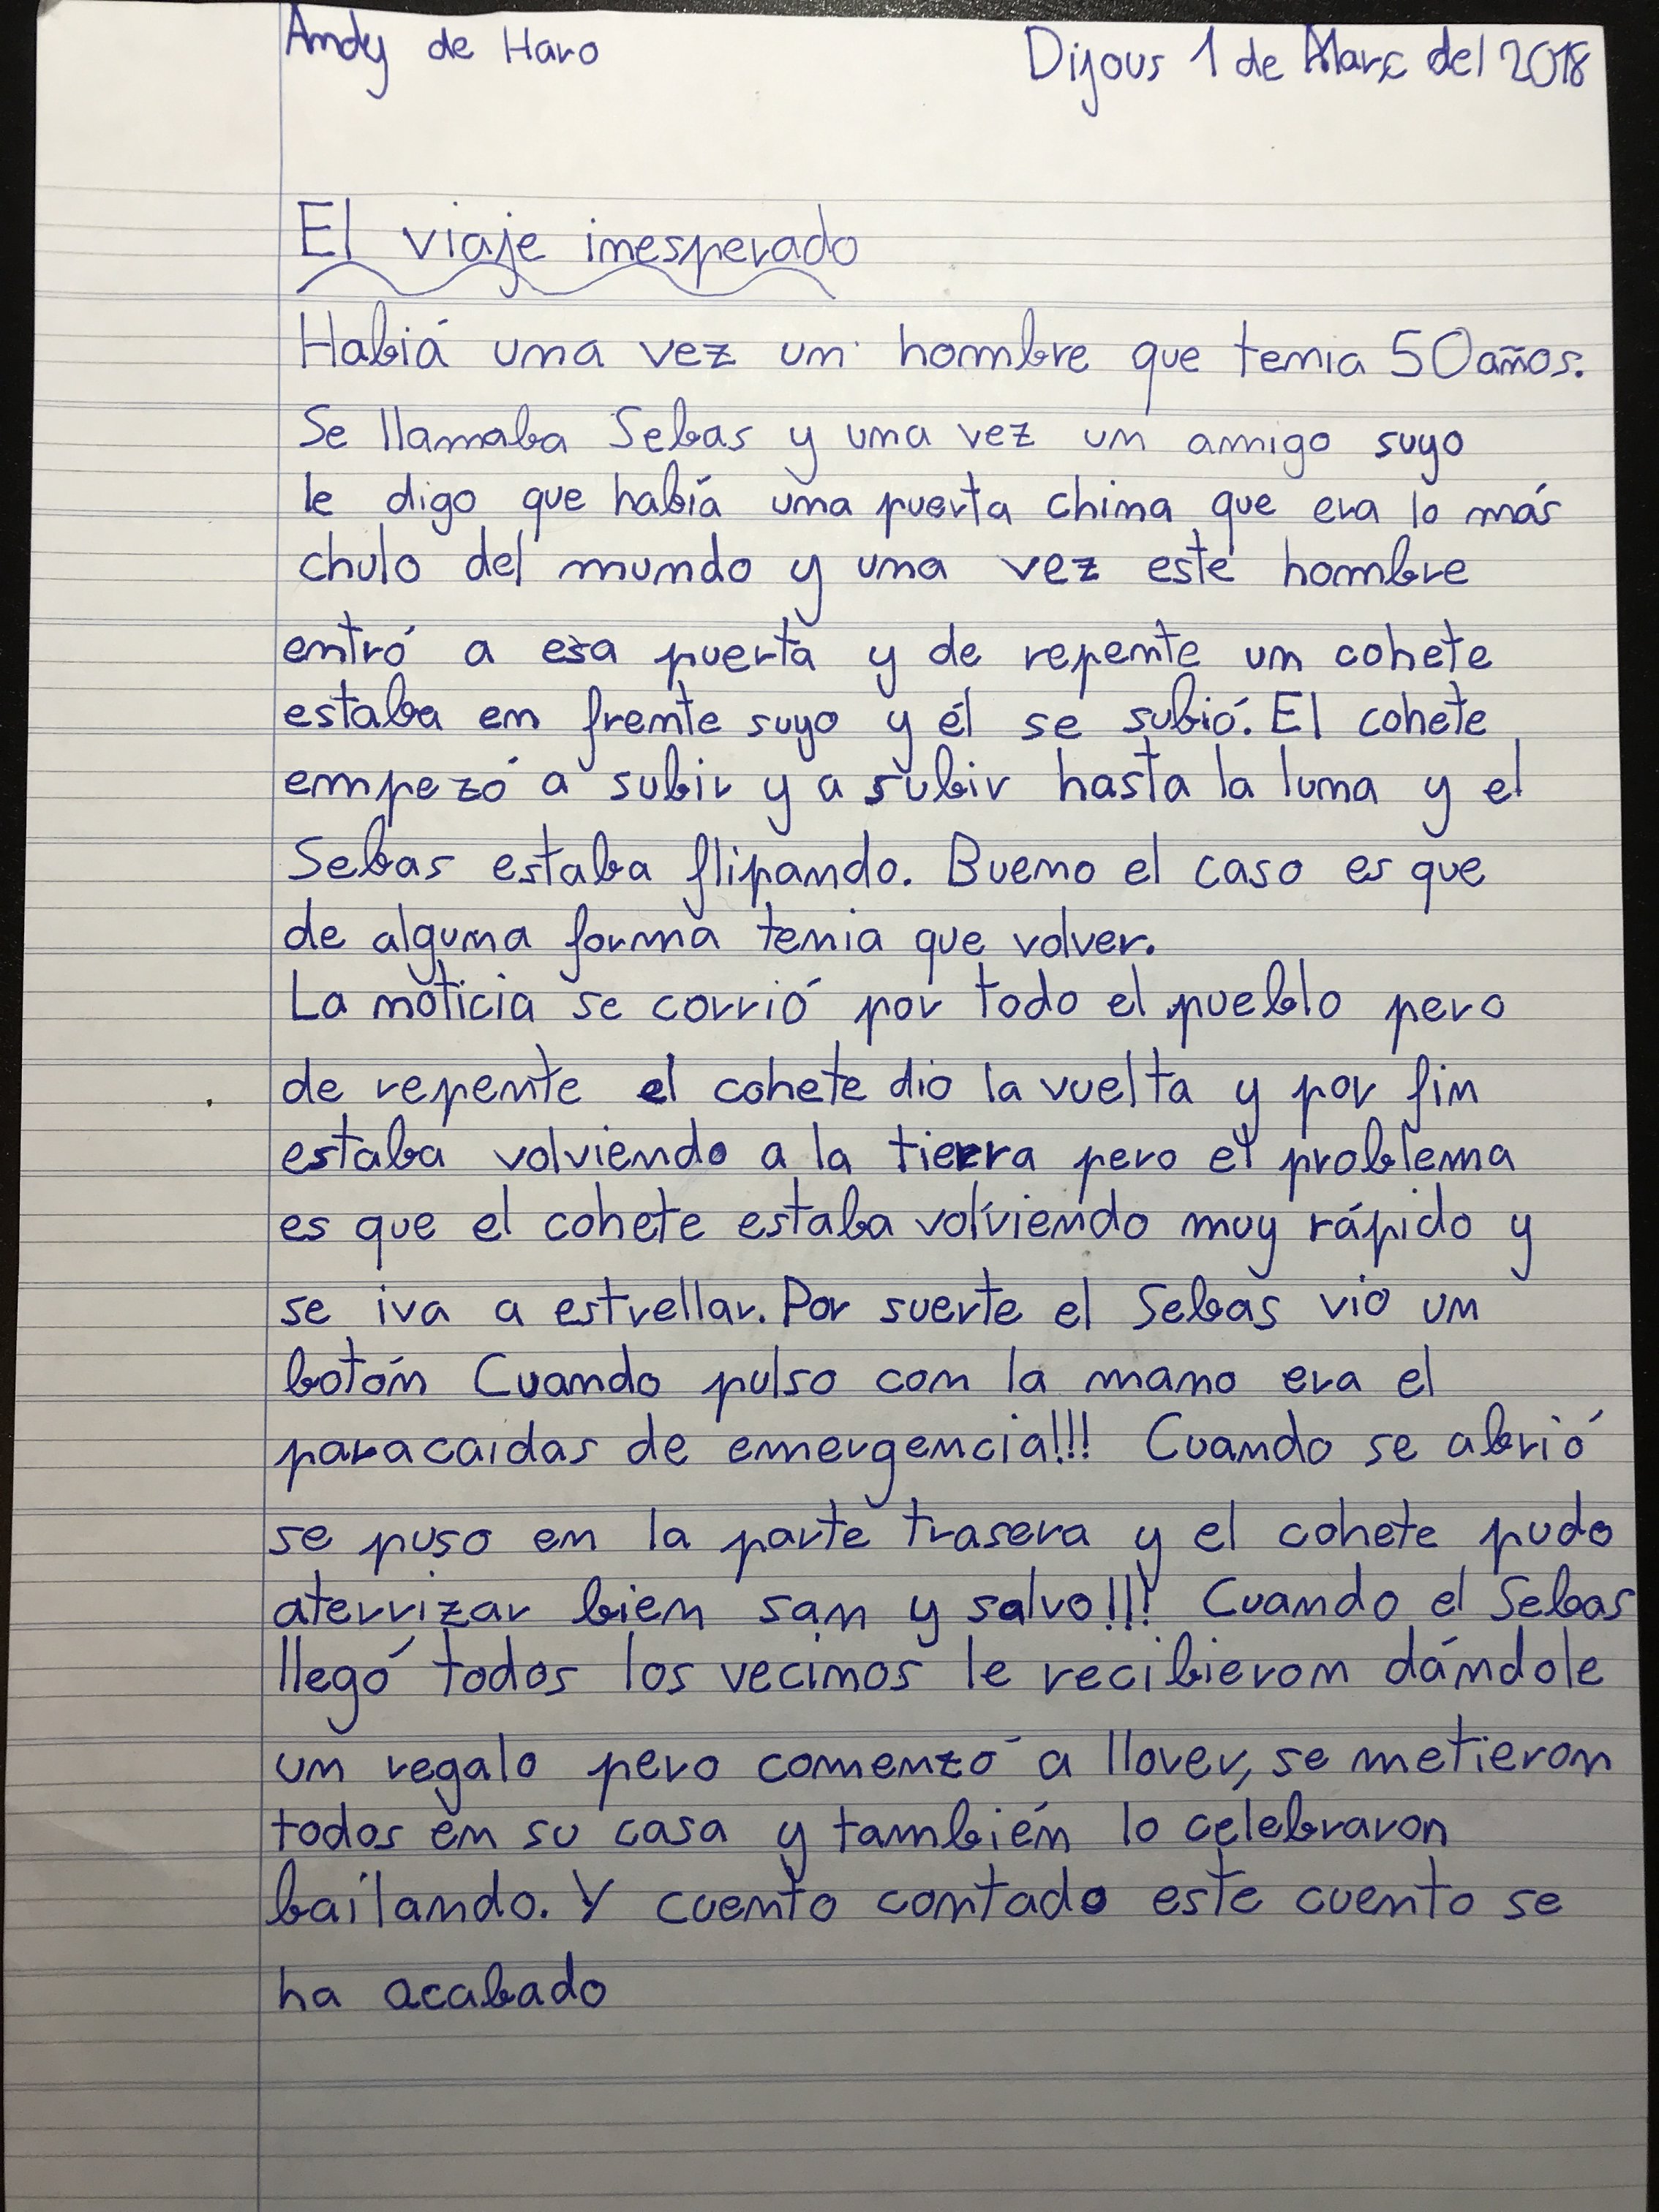 Andy de Haro
Dijous 1 de Març del 2018
El viaje inesperado
Habiá una vez un hombre que tenia 50 años.
Se llamaba Sebas y una vez un amigo suyo
le digo que habiá una puerta china que era lo más
chulo del mundo y una vez este hombre
entró a esa puerta y de repente un cohete
estaba en frente suyo y él se subió. El cohete
empezó a subir y a subir hasta la luna y el
Sebas estaba flipando. Bueno el caso es que
de alguna forma tenia que volver.
La noticia se corrió por todo el pueblo pero
de repente el cohete dio la vuelta y por fin
estaba volviendo a la tierra pero el problema
es que el cohete estaba volviendo muy rápido y
se iva a estrellar. Por suerte el Sebas vio un
botón Cuando pulso con la mano era el
paracaidas de emergencia!!! Cuando se abrió
se puso en la parte trasera y el cohete pudo
aterrizar bien san y salvo!!! Cuando el Sebas
llegó todos los vecinos le recibieron dándole
un regalo pero comenzó a llover, se metieron
todos en su casa y también lo celebraron
bailando. Y cuento contado este cuento se
ha acabado